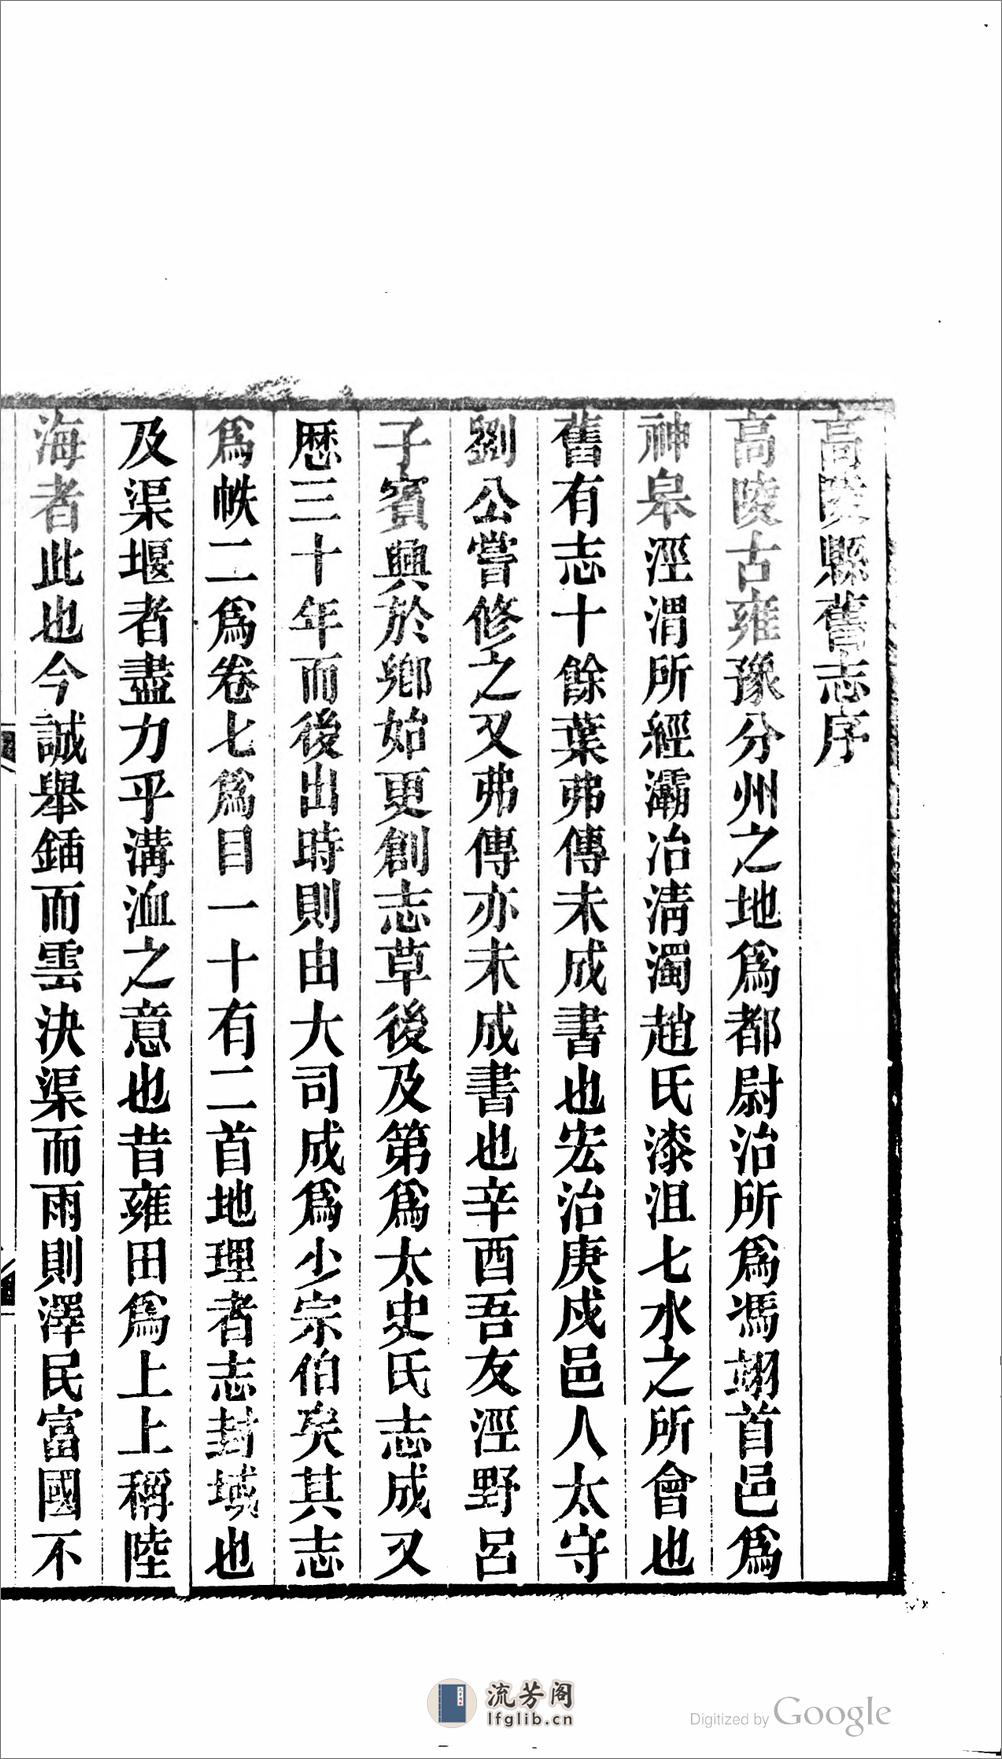 高陵縣舊志序
高陵古雍豫分州之地爲都尉治所爲馮翊首邑爲
神皋涇渭所經灞冶淸濁趙氏漆沮七水之所會也
舊有志十餘葉弗傳未成書也宏治庚戍邑人太守
劉公嘗修之又弗傳亦未成書也辛酉吾友涇野呂
子賓興於鄉始更創志草後及第爲太史氏志成又
歷三十年而後出時則由大司成爲少宗伯矣其志
爲帙二爲卷七爲目一十有二首地理者志封域也
及渠堰者盡力乎溝洫之意也昔雍田爲上上稱陸
海者此也今誠舉鍤而雲決渠而雨則澤民富國不
流芳阁
lfglib.cn
Digitized by Google